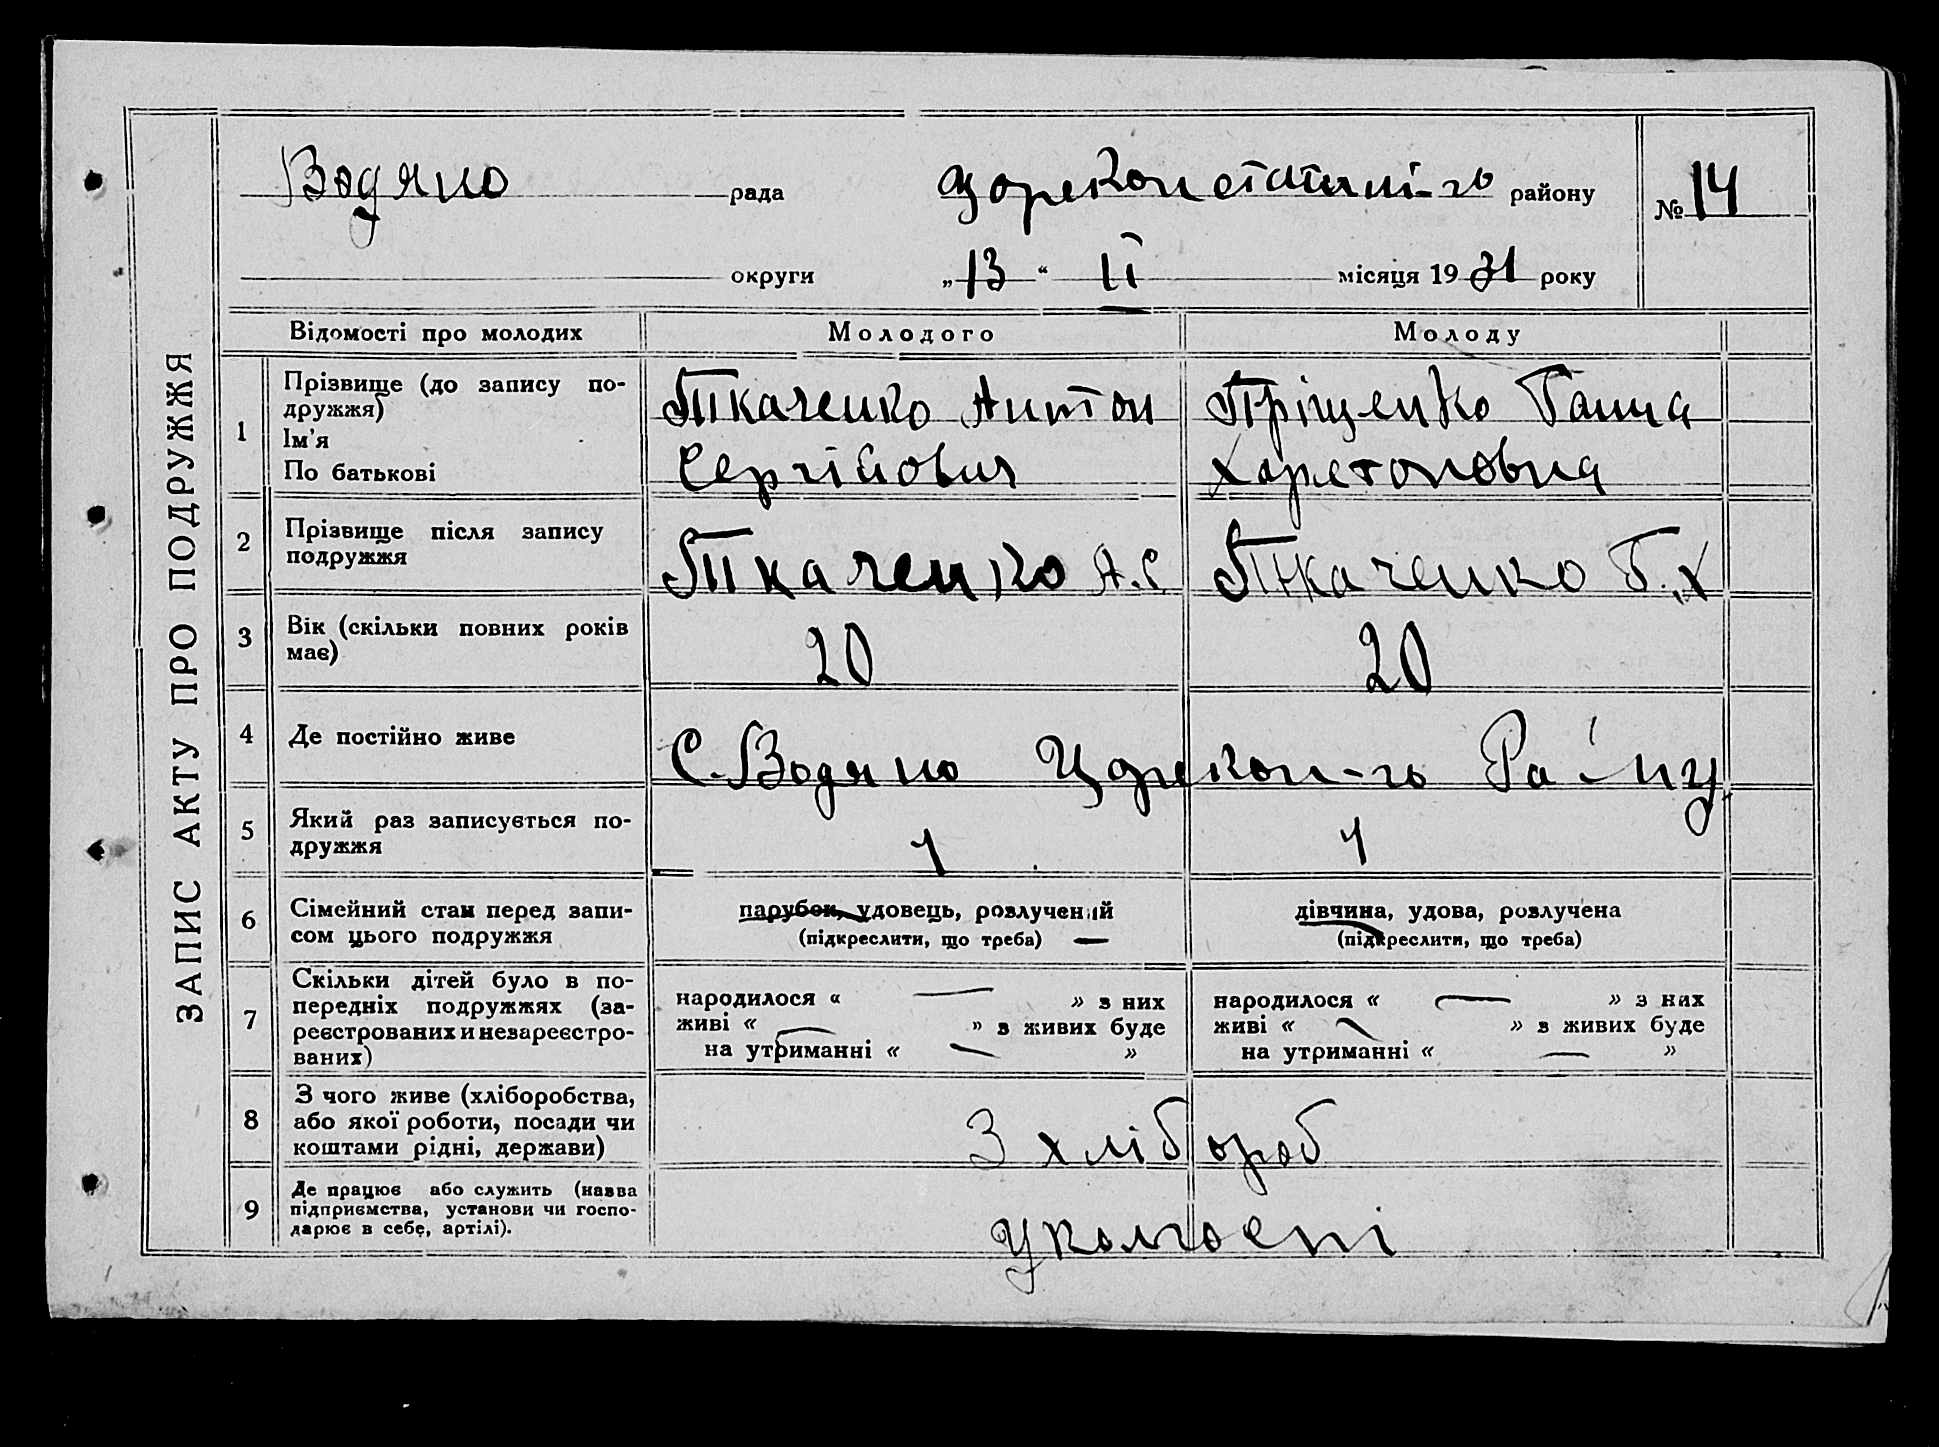 ЗАПИС АКТУ ПРО ПОДРУЖЖЯ
Водяно рада
Царекон района
№ 14
округи
„13“ II місяця 1931 року
Відомості про молодих
Молодого
Молоду
1
Прізвище (до запису по-
дружжя)
Ім'я
По батькові
Ткаченко Антон
Сергійович
Гріщенко Ганна
Харетоновна
2
Прізвище після запису
подружжя
Ткаченко А.С.
Ткаченко Г.Х
3
Вік (скільки повних років
має)
20
20
4
Де постійно живе
С. Водяно Царекон-го Ра-ну
5
Який раз записується по-
дружжя
1
1
6
Сімейний стан перед запи-
сом цього подружжя
парубок, удовець, розлучений
(підкреслити, що треба) —
дівчина, удова, розлучена
(підкреслити, що треба)
7
Скільки дітей було в по-
передніх подружжях (за-
реєстрованих и незареєстро-
ваних)
народилося « — » з них
живі « — » з живих буде
на утриманні « — »
народилося « — » з них
живі « — » з живих буде
на утриманні « — »
8
З чого живе (хліборобства,
або якої роботи, посади чи
коштами рідні, держави)
З хлібороб
9
Де працює або служить (назва
підприємства, установи чи госпо-
дарює в себе, артілі).
у колгоспі